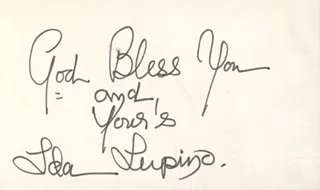 God Bless You
and
Your's
Ida Lupino.